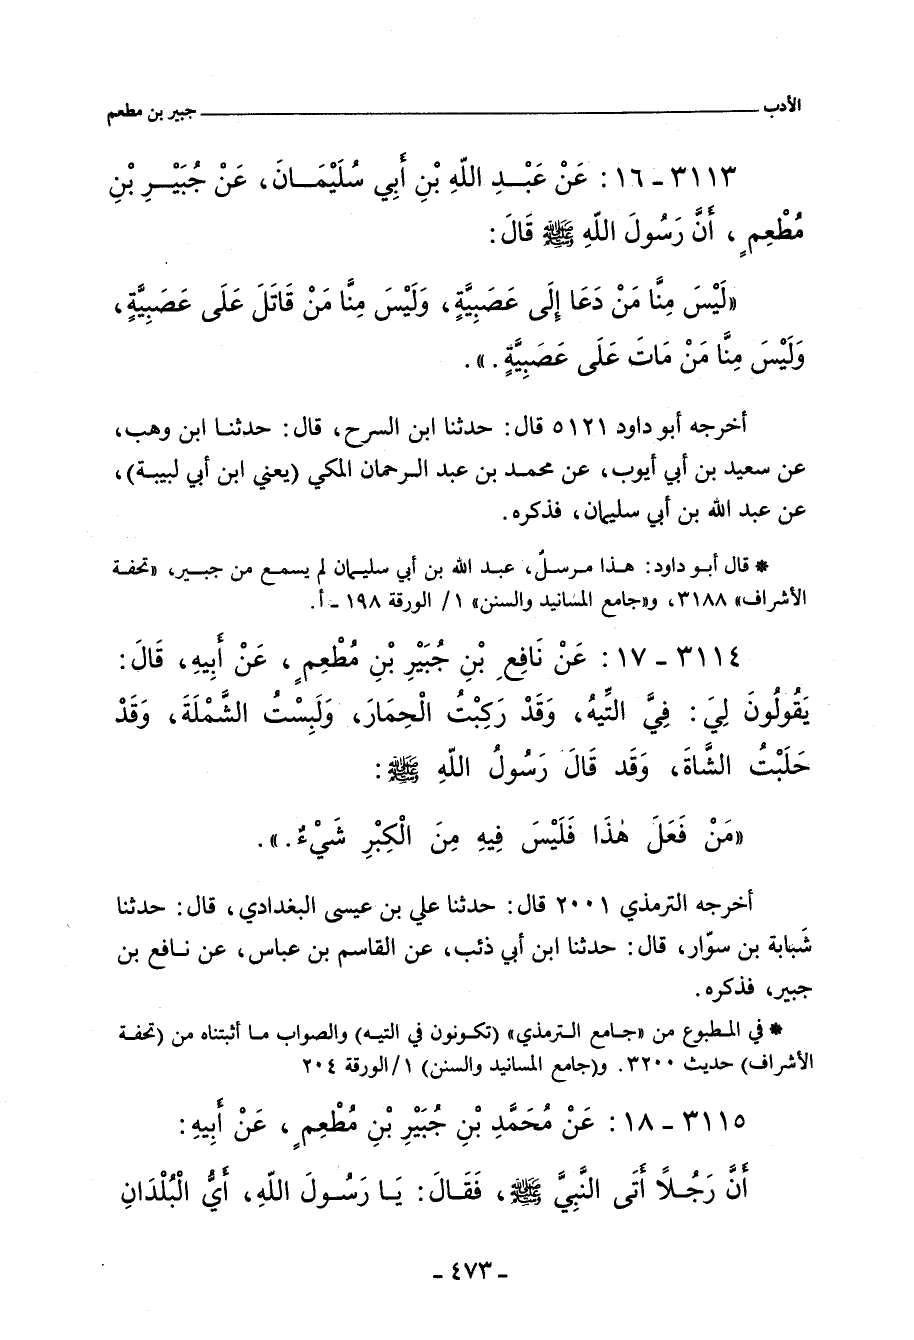 الأدب ــــــــــــــــــــ جبير بن مطعم
٣١١٣ ـ ١٦ : عَنْ عَبْـدِ اللّهِ بْنِ أَبِي سُلَيْمَـانَ، عَنْ جُبَيْـرِ بْنِ
مُطْعِمٍ ، أَنَّ رَسُولَ اللّهِ ﷺ قَالَ :
«لَيْسَ مِنَّا مَنْ دَعَا إِلَى عَصَبِيَّةٍ، وَلَيْسَ مِنَّا مَنْ قَاتَلَ عَلَى عَصَبِيَّةٍ،
وَلَيْسَ مِنَّا مَنْ مَاتَ عَلَى عَصَبِيَّةٍ .» .
أخرجه أبو داود ٥١٢١ قال : حدثنا ابن السرح، قال : حدثنـا ابن وهب،
عن سعيد بن أبي أيوب، عن محمد بن عبد الـرحمان المكي (يعني ابن أبي لبيبـة)،
عن عبد الله بن أبي سليمان، فذكره .
* قال أبـو داود : هـذا مـرسلٌ، عبـد الله بن أبي سليـمان لم يسمـع من جبيـر، «تحفـة
الأشراف» ٣١٨٨، و«جامع المسانيد والسنن» ١/ الورقة ١٩٨ ـ أ .
٣١١٤ ـ ١٧ : عَنْ نَافِعِ بْنِ جُبَيْرِ بْنِ مُطْعِمٍ ، عَنْ أَبِيهِ، قَالَ :
يَقُولُونَ لِيَ : فِيَّ التِّيهُ، وَقَدْ رَكِبْتُ الْحِمَارَ، وَلَبِسْتُ الشَّمْلَةَ، وَقَدْ
حَلَبْتُ الشَّاةَ، وَقَد قَالَ رَسُولُ اللّهِ ﷺ :
«مَنْ فَعَلَ هٰذَا فَلَيْسَ فِيهِ مِنَ الْكِبْرِ شَيْءٌ .» .
أخرجه الترمذي ٢٠٠١ قال : حدثنا علي بن عيسى البغدادي، قال : حدثنا
شَبابة بن سوّار، قال : حدثنا ابن أبي ذئب، عن القاسم بن عباس، عن نـافع بن
جبير، فذكره .
* في المـطبوع من «جـامع الـترمذي» (تكـونون في التيـه) والصواب مـا أثبتناه من (تحفـة
الأشراف) حديث ٣٢٠٠ . و(جامع المسانيد والسنن) ١/الورقة ٢٠٤
٣١١٥ ـ ١٨ : عَنْ مُحَمَّدِ بْنِ جُبَيْرِ بْنِ مُطْعِمٍ ، عَنْ أَبِيهِ :
أَنَّ رَجُـلاً أَتَى النَّبِيَّ ﷺ، فَقَـالَ : يَـا رَسُـولَ اللّهِ، أَيُّ الْبُلْدَانِ
ـ ٤٧٣ ـ